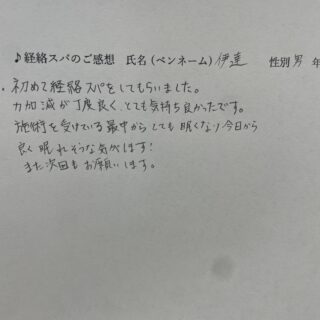 ♪経絡スパのご感想 氏名(ペンネーム)伊達 性別 男 年
初めて経絡スパをしてもらいました。
力加減が丁度良く、とても気持ち良かったです。
施術を受けている最中からしても眠くなり、今日から
良く眠れそうな気がします!
また次回もお願いします。